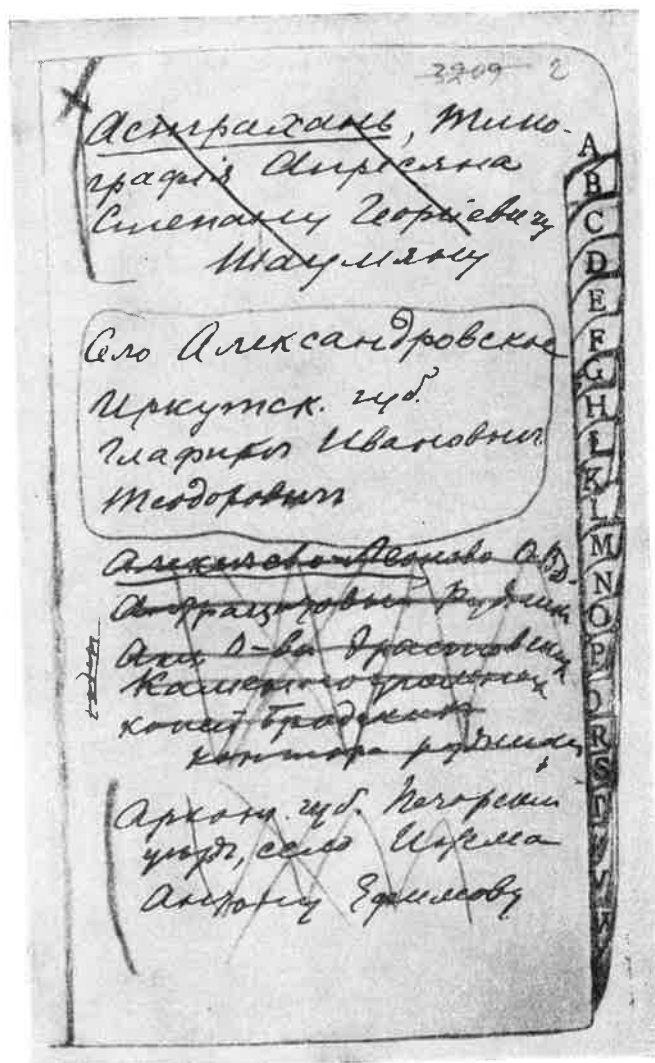 3209 2
Астрахань, типо-
графія Апресяна
Степану Георгіевичу
Шаумяну
Село Александровское
Иркутск. губ.
Глафиры Ивановны
Теодорович
Алексеево-Леоново О.В.Д.
Антрацитовый рудник
Акц. О-ва
Каменноугольных
копей
контора рудника
Архан. губ. Печорский
уездъ, село Ижма
Антону Ефимову
A
B
C
D
E
F
G
H
I
K
L
M
N
O
P
R
S